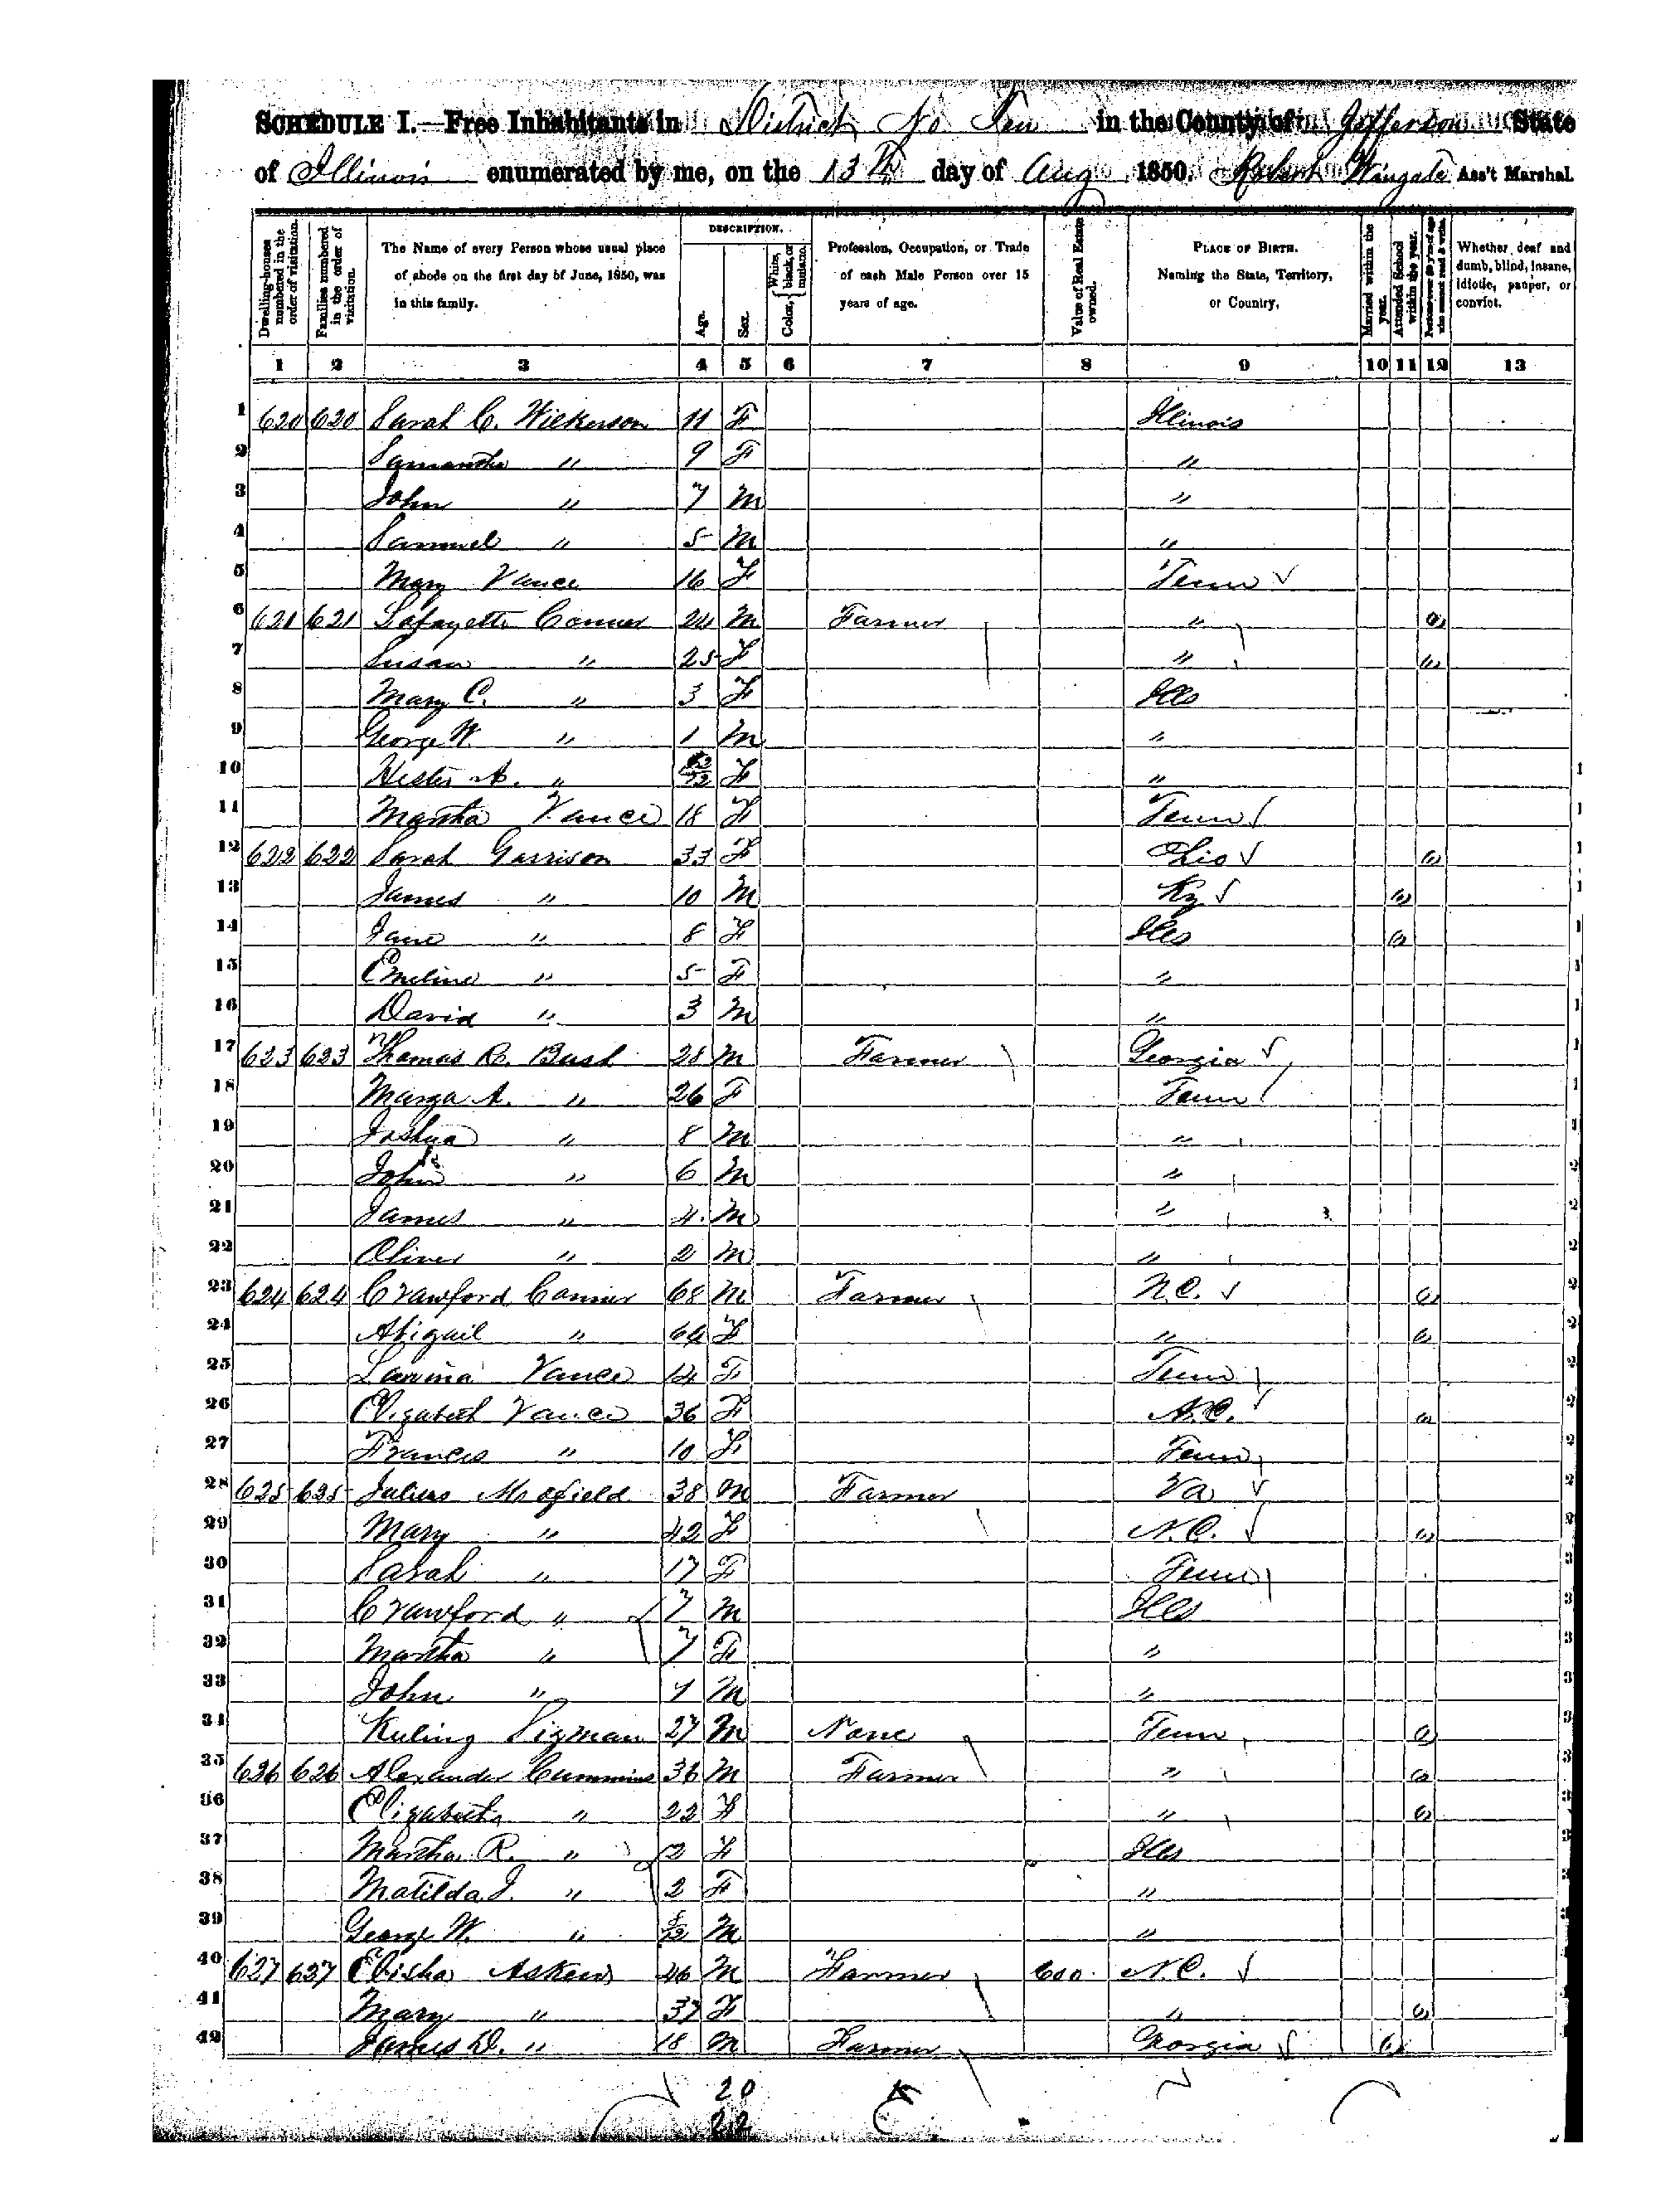 SCHEDULE I.—Free Inhabitants in District No Ten in the County of Jefferson State
of Illinois enumerated by me, on the 13th day of Aug 1850. Robert Wingate Ass't Marshal.
Dwelling-houses numbered in the order of visitation.
Families numbered in the order of visitation.
The Name of every Person whose usual place of abode on the first day of June, 1850, was in this family.
DESCRIPTION.
Age.
Sex.
Color, { White, black, or mulatto.
Profession, Occupation, or Trade of each Male Person over 15 years of age.
Value of Real Estate owned.
PLACE OF BIRTH. Naming the State, Territory, or Country.
Married within the year.
Attended School within the year.
Persons over 20 y'rs of age who cannot read & write.
Whether deaf and dumb, blind, insane, idiotic, pauper, or convict.
1 2 3 4 5 6 7 8 9 10 11 12 13
1 620 620 Sarah C. Wilkerson 11 F Illinois
2 Samantha " 9 F "
3 John " 7 M "
4 Samuel " 5 M "
5 Mary Vance 16 F Tenn
6 621 621 Lafayette Conner 24 M Farmer "
7 Susan " 25 F "
8 Mary C. " 3 F Ills
9 George W. " 1 M "
10 Hester A. " F "
11 Martha Vance 18 F Tenn
12 622 622 Sarah Garrison 33 F Ohio
13 James " 10 M Ky
14 Jane " 8 F Ills
15 Emeline " 5 F "
16 David " 3 M "
17 623 623 Thomas R. Bush 28 M Farmer Georgia
18 Marga A. " 26 F Tenn
19 Joshua " 8 M "
20 John " 6 M "
21 James " 4 M "
22 Oliver " 2 M "
23 624 624 Crawford Conner 68 M Farmer N.C.
24 Abigail " 64 F "
25 Lavina Vance 14 F Tenn
26 Elizabeth Vance 36 F N.C.
27 Frances " 10 F Tenn
28 625 625 Julius 38 M Farmer Va
29 Mary " 42 F N.C.
30 Sarah " 17 F Tenn
31 Crawford " 7 M Ills
32 Martha " 7 F "
33 John " M "
34 Sigman 27 M None Tenn
35 626 626 Alexander Cummins 36 M Farmer "
36 Elizabeth " 22 F "
37 Martha R. " 2 F Ills
38 Matilda J. " 2 F "
39 George W. " M "
40 627 627 Elisha Askew 46 M Farmer 600 N.C.
41 Mary " 37 F "
42 James D. " 18 M Farmer Georgia
20
22